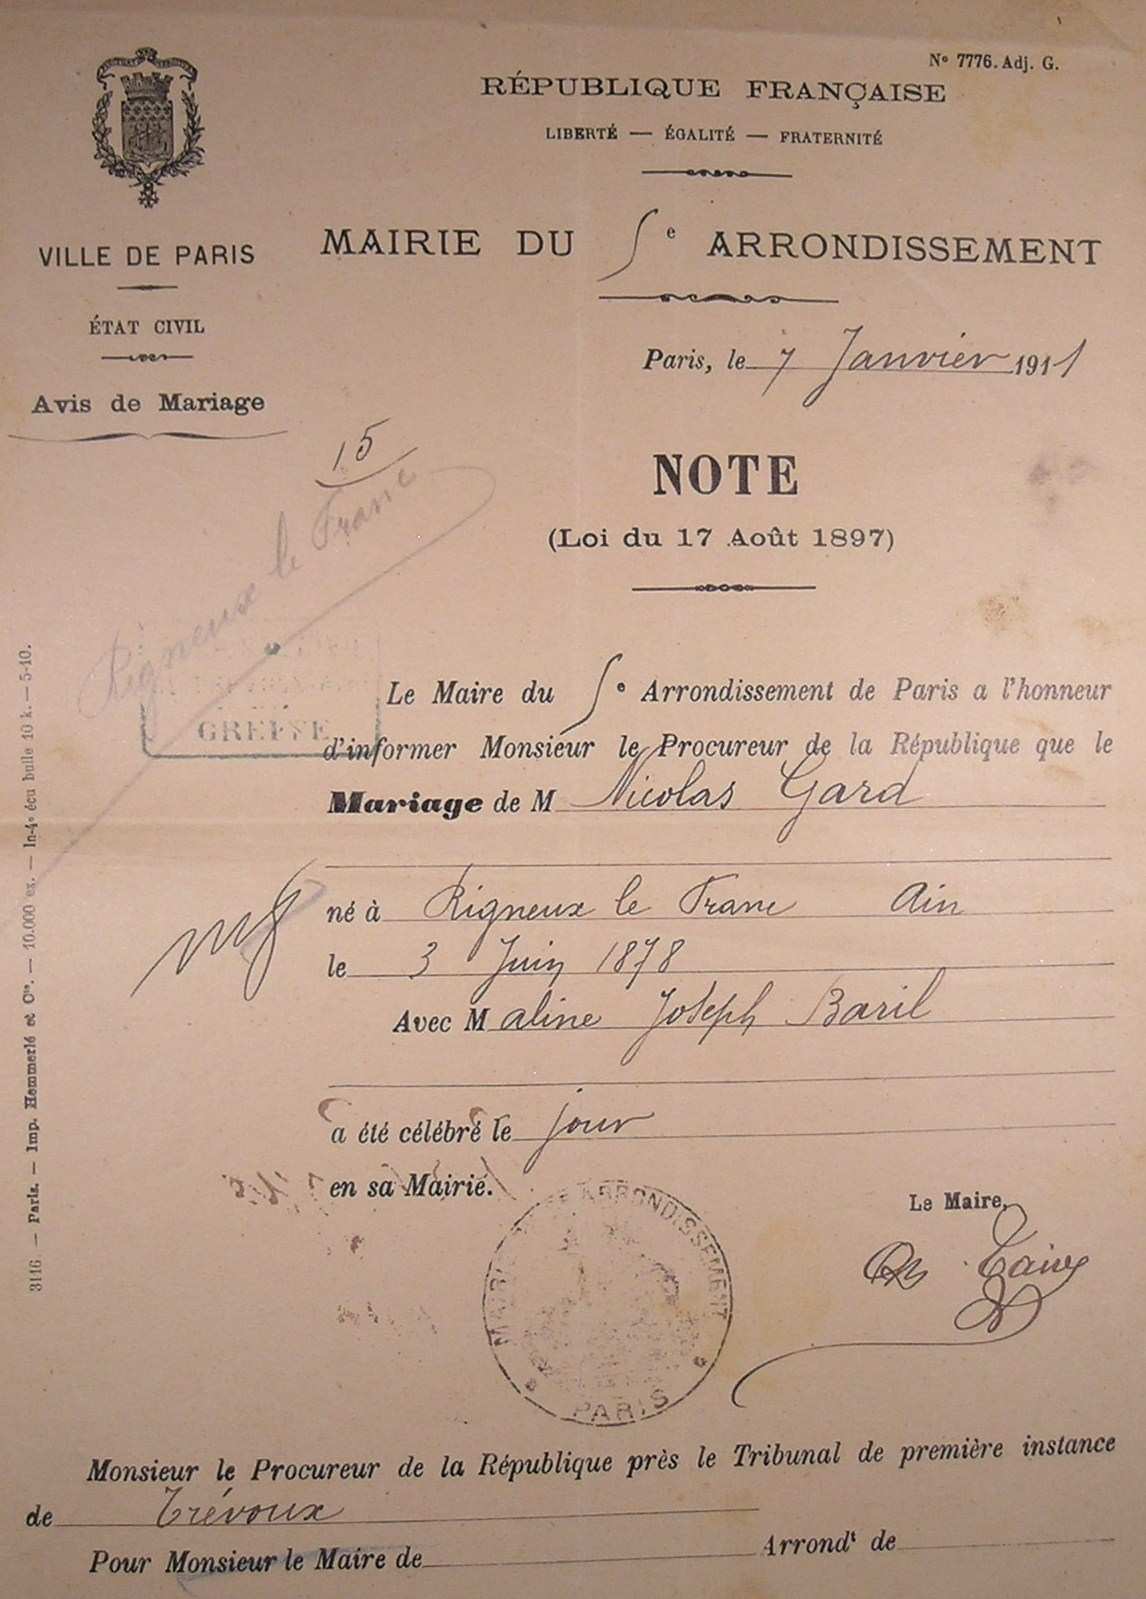 Nº 7776. Adj. G.
RÉPUBLIQUE FRANÇAISE
LIBERTÉ — ÉGALITÉ — FRATERNITÉ
VILLE DE PARIS
MAIRIE DU 5e ARRONDISSEMENT
ÉTAT CIVIL
Paris, le 7 Janvier 1911
Avis de Mariage
15
Rigneux le Franc
NOTE
(Loi du 17 Août 1897)
GREFFE
Le Maire du 5e Arrondissement de Paris a l'honneur
d'informer Monsieur le Procureur de la République que le
Mariage de M Nicolas Gard
né à Rigneux le Franc Ain
le 3 Juin 1878
Avec M aline Joseph Baril
a été célébré le jour
en sa Mairie.
Le Maire,
MAIRIE ARRONDISSEMENT
PARIS
Monsieur le Procureur de la République près le Tribunal de première instance
de Trévoux
Pour Monsieur le Maire de Arrondt de
3116. — Paris. — Imp. Hemmerlé et Cie. — 10.000 ex. — In-4º écu bulle 10 k. — 5-10.